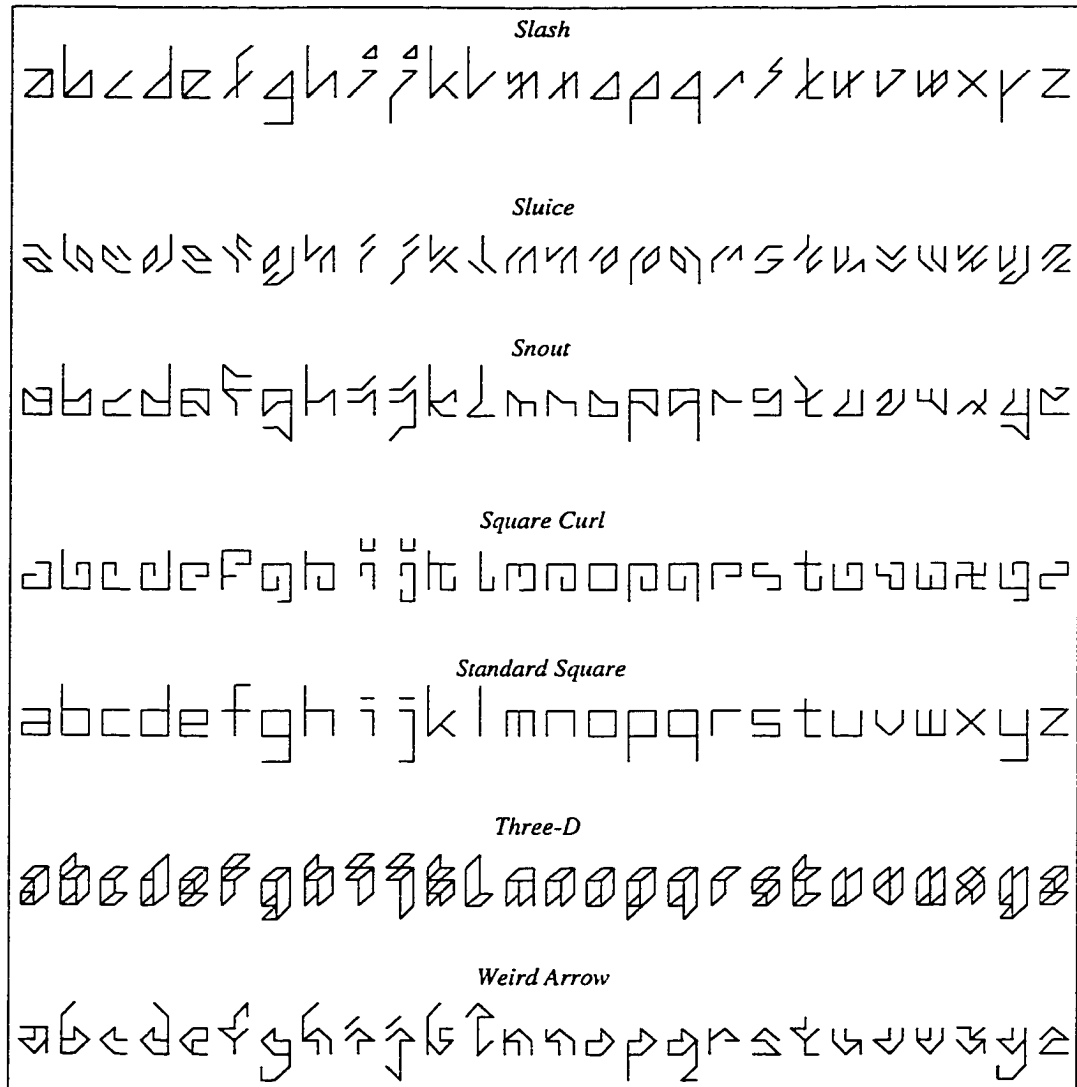 Slash
abcdefghijklmnopqrstuvwxyz
Sluice
abcdefghijklmnopqrstuvwxyz
Snout
abcdefghijklmnopqrstuvwxyz
Square Curl
abcdefghijklmnopqrstuvwxyz
Standard Square
abcdefghijklmnopqrstuvwxyz
Three-D
abcdefghijklmnopqrstuvwxyz
Weird Arrow
abcdefghijklmnopqrstuvwxyz